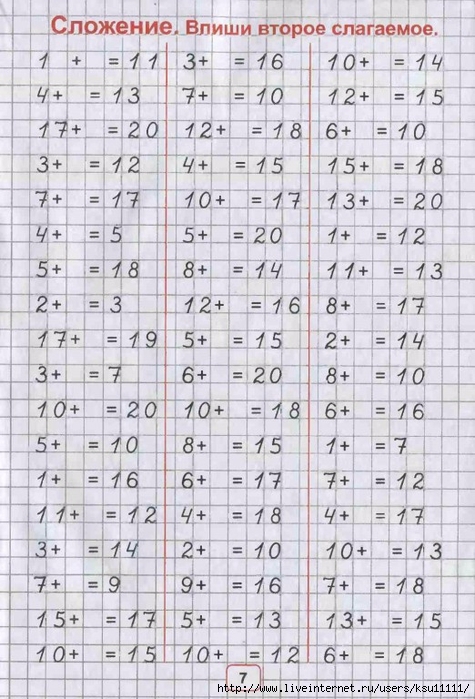 Сложение. Впиши второе слагаемое.
1 + = 11 3+ = 16 10+ = 14
4+ = 13 7+ = 10 12+ = 15
17+ = 20 12+ = 18 6+ = 10
3+ = 12 4+ = 15 15+ = 18
7+ = 17 10+ = 17 13+ = 20
4+ = 5 5+ = 20 1+ = 12
5+ = 18 8+ = 14 11+ = 13
2+ = 3 12+ = 16 8+ = 17
17+ = 19 5+ = 15 2+ = 14
3+ = 7 6+ = 20 8+ = 10
10+ = 20 10+ = 18 6+ = 16
5+ = 10 8+ = 15 1+ = 7
1+ = 16 6+ = 17 7+ = 12
11+ = 12 4+ = 18 4+ = 17
3+ = 14 2+ = 10 10+ = 13
7+ = 9 9+ = 16 7+ = 18
15+ = 17 5+ = 13 13+ = 15
10+ = 15 10+ = 12 6+ = 18
7
http://www.liveinternet.ru/users/ksu11111/